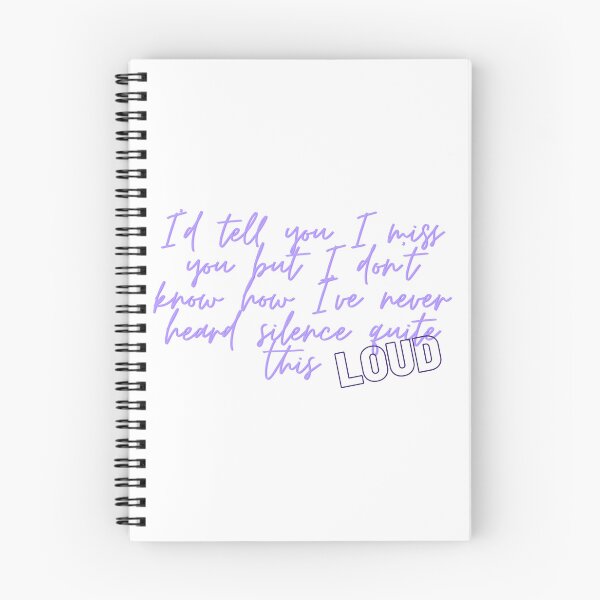 I'd tell you I miss
you but I don't
know how I've never
heard silence quite
this LOUD